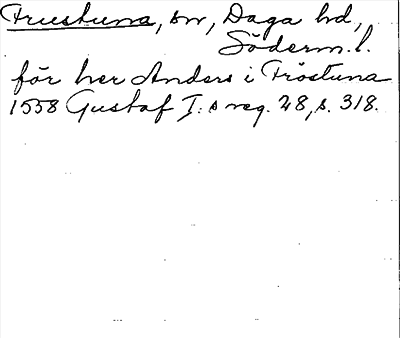 Frustuna, sn, Daga hd,
Söderm. l.
för her Anders i Fröstuna
1558 Gustaf I:s reg. 28, s. 318.